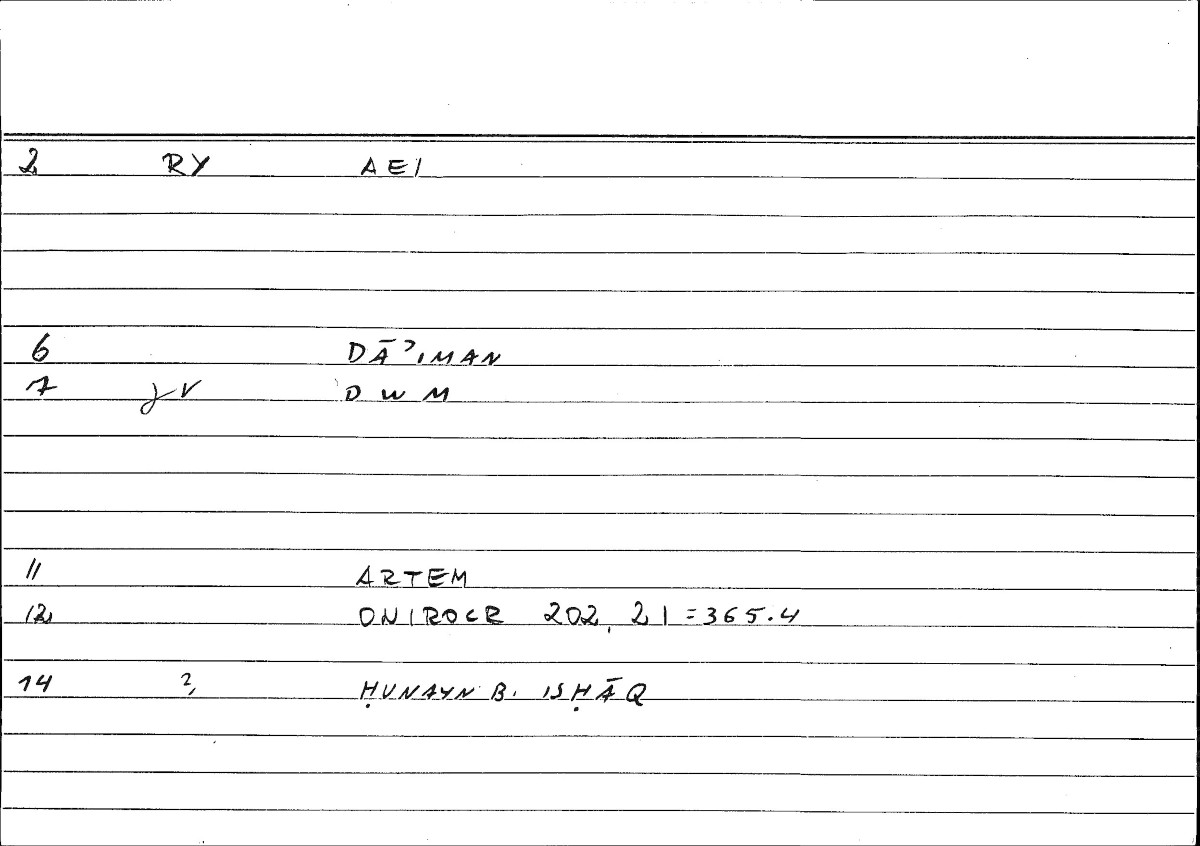 2 RY AEI
6 DĀʾIMAN
7 JV DWM
11 ARTEM
12 ONIROCR 202, 21=365.4
14 ḤUNAYN B. ISḤĀQ